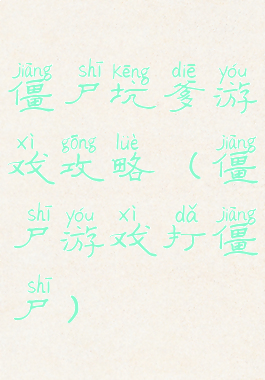 jiāng shī kēng diē yóu
僵尸坑爹游
xì gōng lüè jiāng
戏攻略（僵
shī yóu xì dǎ jiāng
尸游戏打僵
shī
尸）